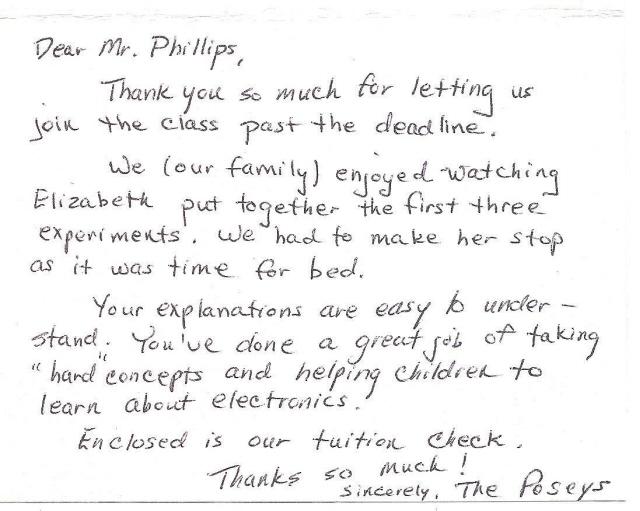 Dear Mr. Phillips,
Thank you so much for letting us
join the class past the deadline.
We (our family) enjoyed watching
Elizabeth put together the first three
experiments. We had to make her stop
as it was time for bed.
Your explanations are easy to under-
stand. You've done a great job of taking
"hard" concepts and helping children to
learn about electronics.
Enclosed is our tuition check.
Thanks so much!
Sincerely, The Poseys